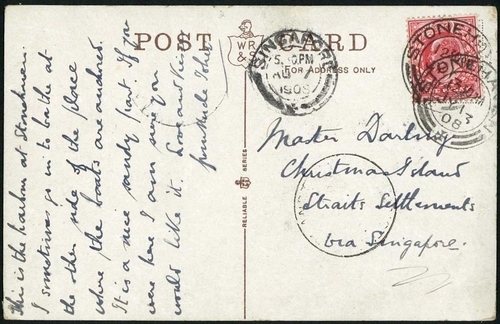 POST CARD
W R & S
FOR ADDRESS ONLY
RELIABLE SERIES
This is the harbour at Stonehaven.
I sometimes go in to bathe at
the other side of the place
where the boats are anchored.
It is a nice sandy part. If you
were here I am sure you
would like it. Love and kisses
from
SINGAPORE
5. PM
1908
STONEHAVEN
08
Master Darling
Christmas Island
Straits Settlements
via Singapore.